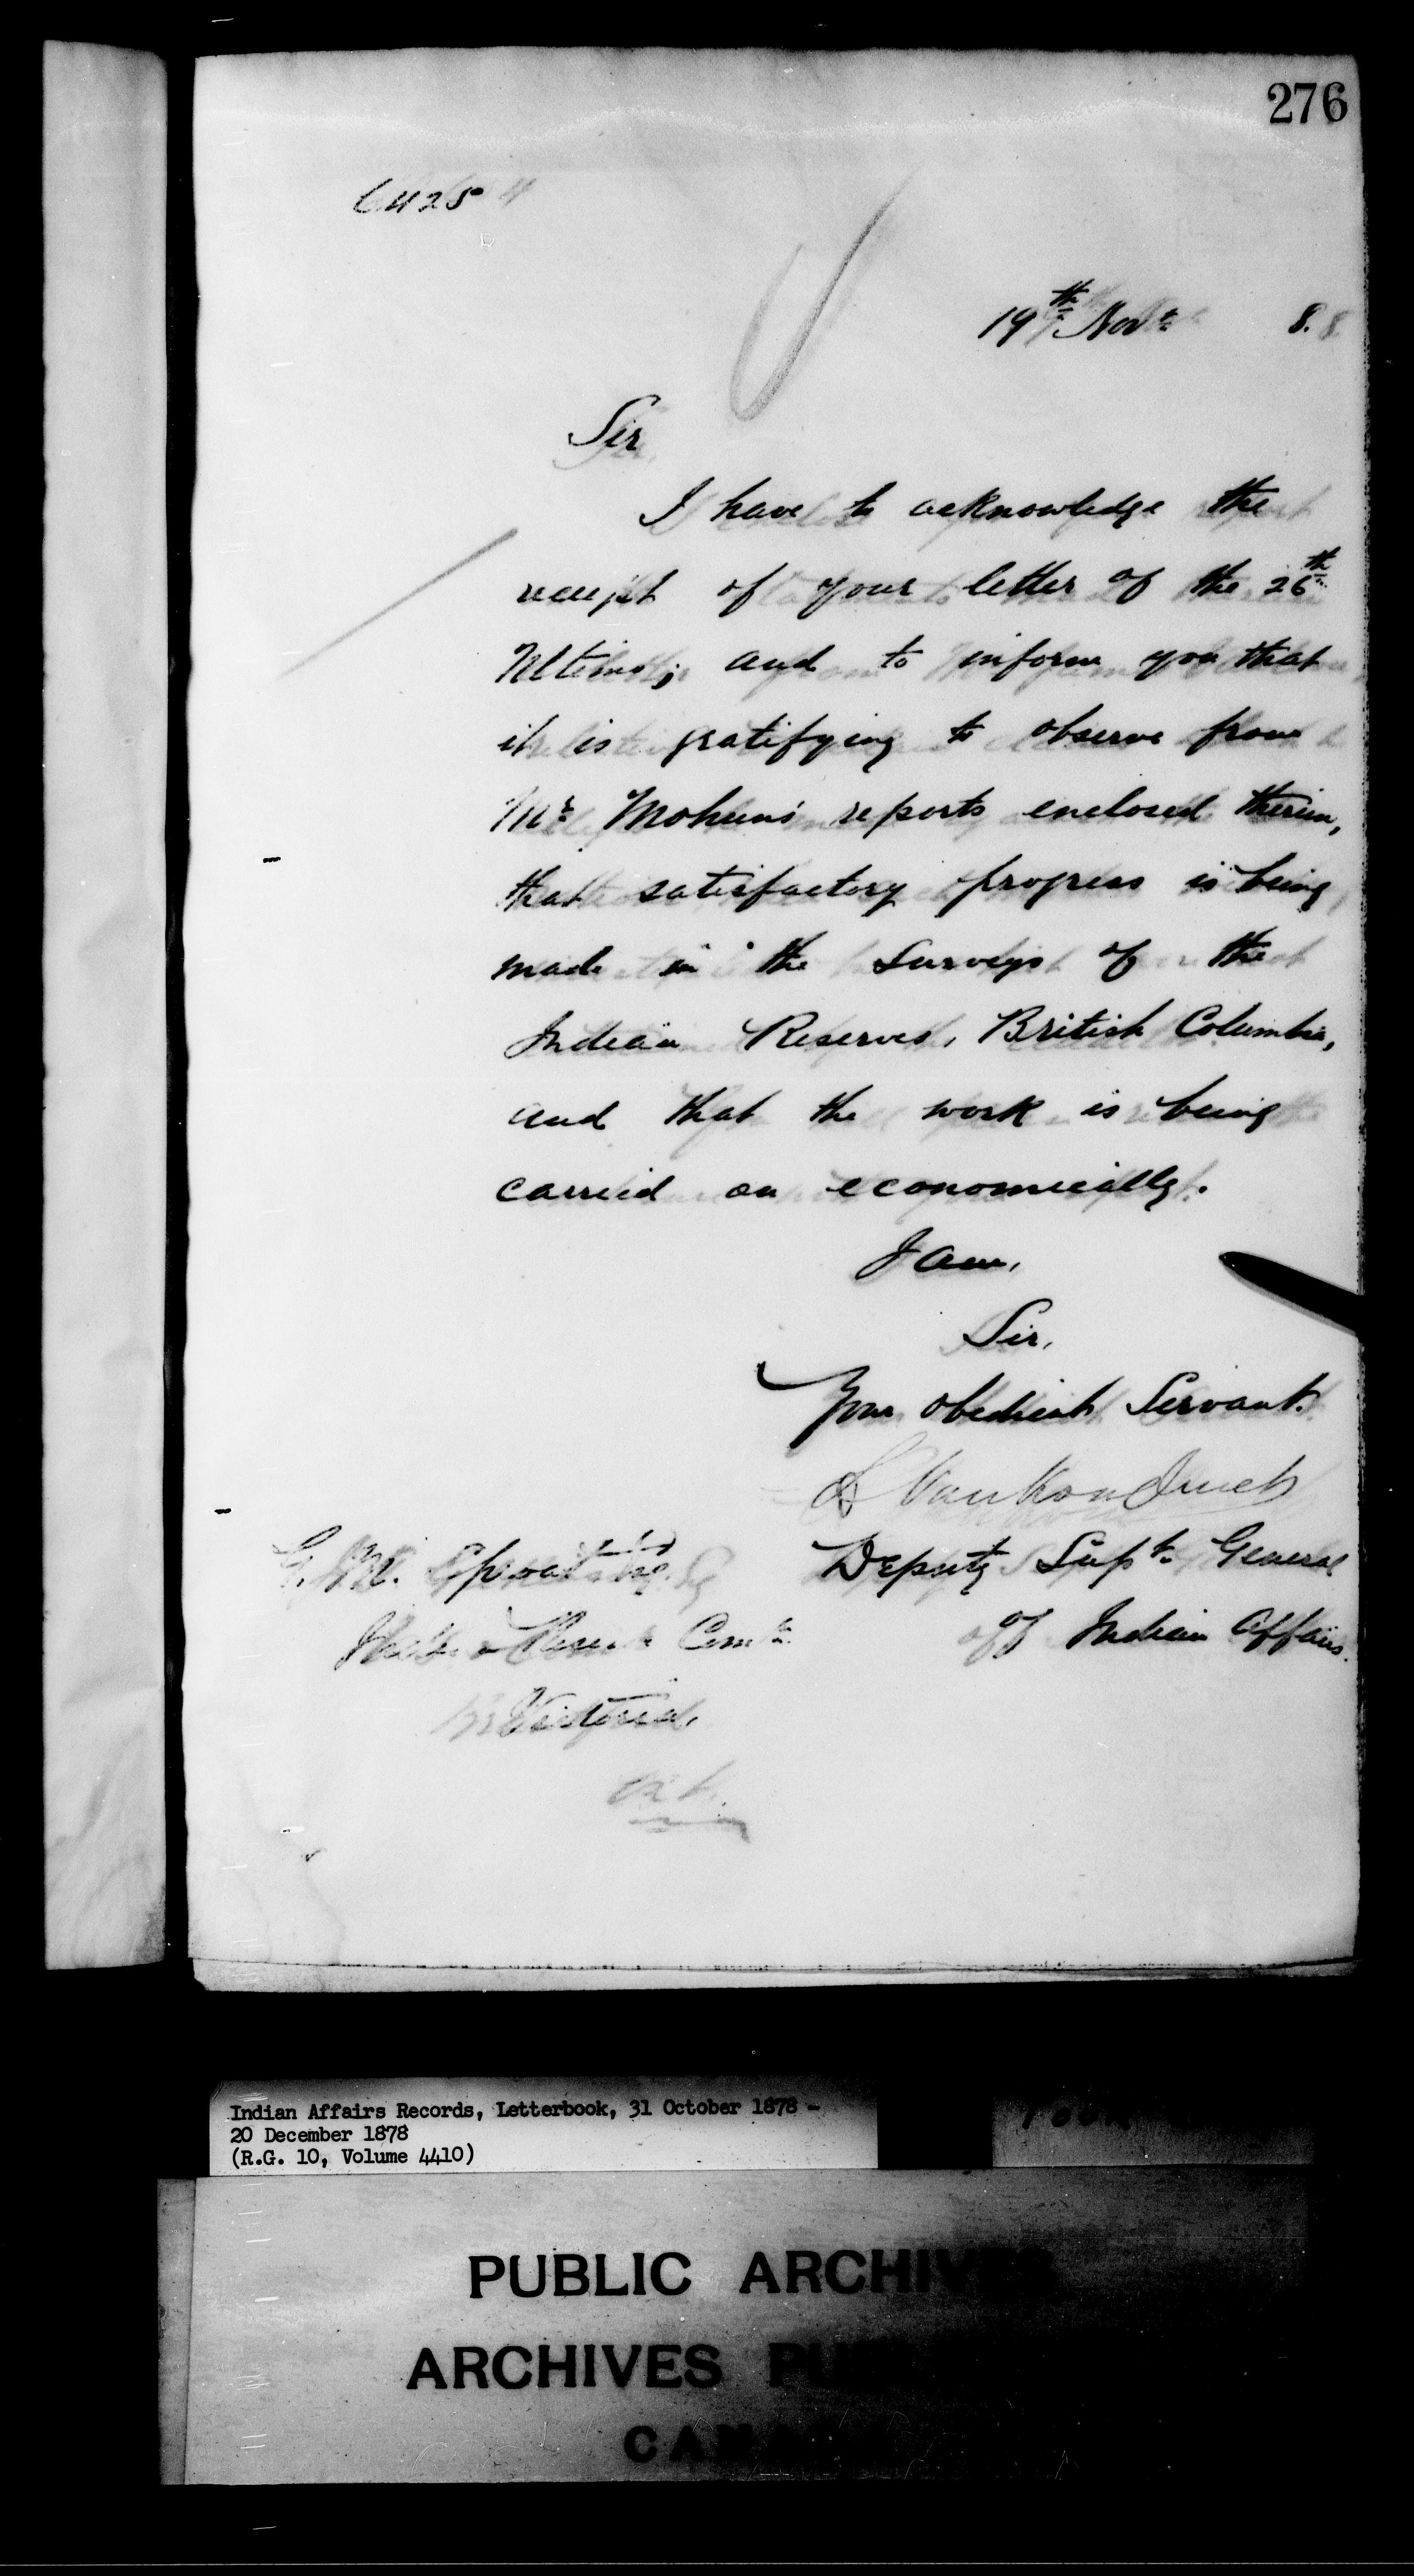 276
6425
19th Novr 8.
Sir
I have to acknowledge the
receipt of your letter of the 26th
Ultimo; and to inform you that
it is gratifying to observe from
Mr Mohuns reports enclosed therein,
that satisfactory progress is being
made in the Surveys of the
Indian Reserves, British Columbia,
and that the work is being
carried on economically.
I am,
Sir,
Your obedient Servant.
L VanKoughnet
Deputy Supt General
of Indian Affairs.
G. M. Sproat Esq
Comr
Victoria,
Indian Affairs Records, Letterbook, 31 October 1878 -
20 December 1878
(R.G. 10, Volume 4410)
PUBLIC ARCHIVES
ARCHIVES PU
CANA